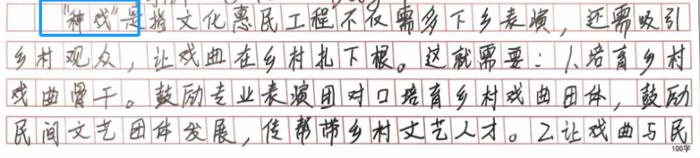 "种戏"是指文化惠民工程不仅需多下乡表演，还需吸引
乡村观众，让戏曲在乡村扎下根。这就需要：1.培育乡村
戏曲骨干。鼓励专业表演团对口培育乡村戏曲团体，鼓励
民间文艺团体发展，传帮带乡村文艺人才。2.让戏曲与民
100字